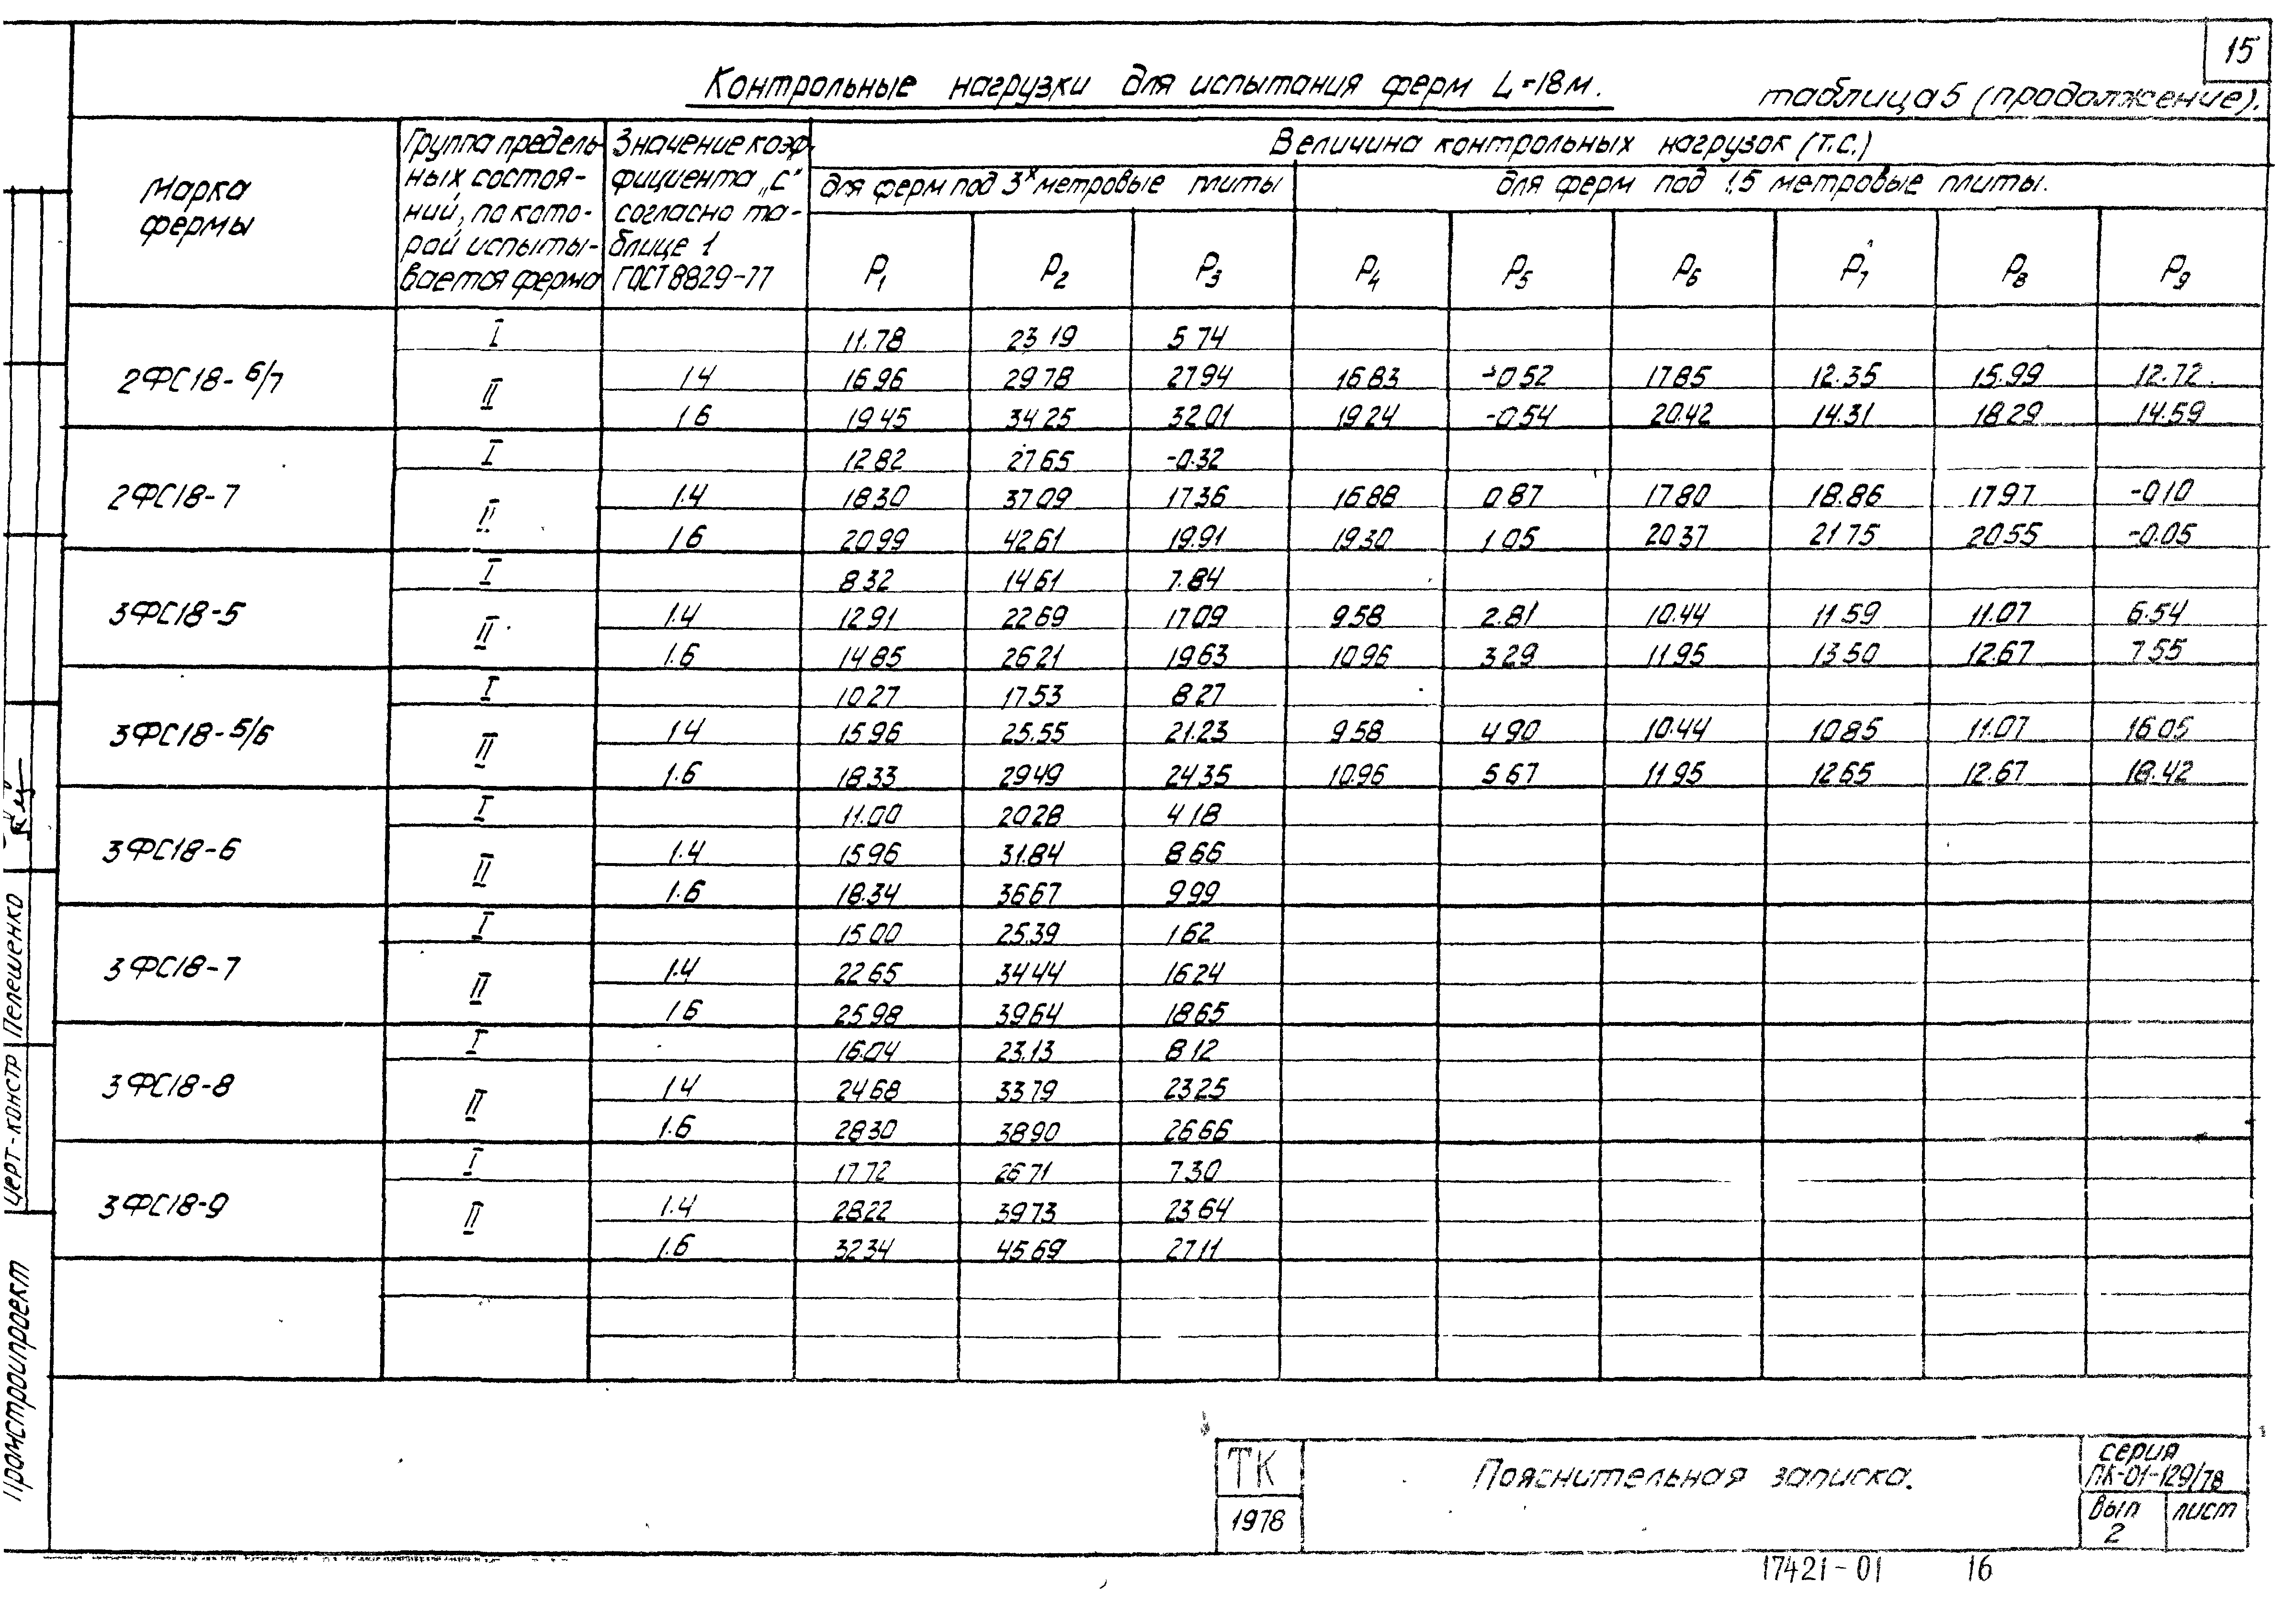 15
Контрольные нагрузки для испытания ферм L=18м.
таблица 5 (продолжение).
Марка фермы
Группа предель-
ных состоя-
ний, по кото-
рой испыты-
вается ферма
Значение коэф-
фициента „С"
согласно та-
блице 1
ГОСТ 8829-77
Величина контрольных нагрузок (т.с.)
для ферм под 3х метровые плиты
для ферм под 1,5 метровые плиты.
P1 P2 P3 P4 P5 P6 P7 P8 P9
2ФС18-6/7
I 11.78 23 19 5 74
II 1.4 16 96 29 78 27 94 16 83 -0 52 17 85 12.35 15.99 12.72
1 6 19 45 34 25 32 01 19 24 -0.54 20.42 14.31 18.29 14.59
2ФС18-7
I 12 82 27 65 -0.32
II 1.4 18 30 37 09 17 36 16 88 0 87 17 80 18.86 17 97 -0 10
1.6 20 99 42 61 19.91 19 30 1 05 20 37 21 75 20.55 -0.05
3ФС18-5
I 8 32 14 61 7.84
II 1.4 12 91 22 69 17 09 9 58 2.81 10.44 11 59 11.07 6.54
1.6 14 85 26 21 19 63 10 96 3 29 11 95 13 50 12.67 7 55
3ФС18-5/6
I 10 27 17 53 8 27
II 1.4 15 96 25.55 21.23 9 58 4 90 10.44 10 85 11.07 16 05
1.6 18.33 29 49 24 35 10.96 5 67 11.95 12 65 12.67 18.42
3ФС18-6
I 11.00 20 28 4 18
II 1.4 15 96 31.84 8 66
1.6 18.34 36 67 9 99
3ФС18-7
I 15 00 25.39 1 62
II 1.4 22 65 34 44 16 24
1 6 25.98 39 64 18 65
3ФС18-8
I 16.04 23.13 8 12
II 1.4 24 68 33 79 23 25
1.6 28 30 38 90 26 66
3ФС18-9
I 17 72 26 71 7 30
II 1.4 28 22 39 73 23 64
1.6 32 34 45 69 27 11
Пелешенко
Промстройпроект
ТК
1978
Пояснительная записка.
серия
ПК-01-129/78
вып
2
лист
17421-01 16